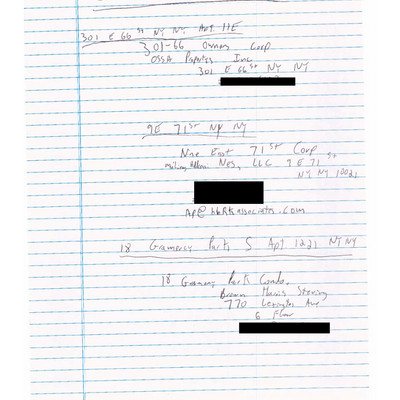 301 E 66 st NY NY Apt 11E
301-66 Owners Corp
OSSA Properties Inc
301 E 66 st NY NY
9E 71st NY NY
Nine East 71st Corp
Mailing Address Nes, LLC 9 E 71 st
NY NY 10021
@hbrkassociates.com
18 Gramercy Park S Apt 1221 NY NY
18 Gramercy Park Condo,
Brown Harris Stevens
770 Lexington Ave
6 Floor